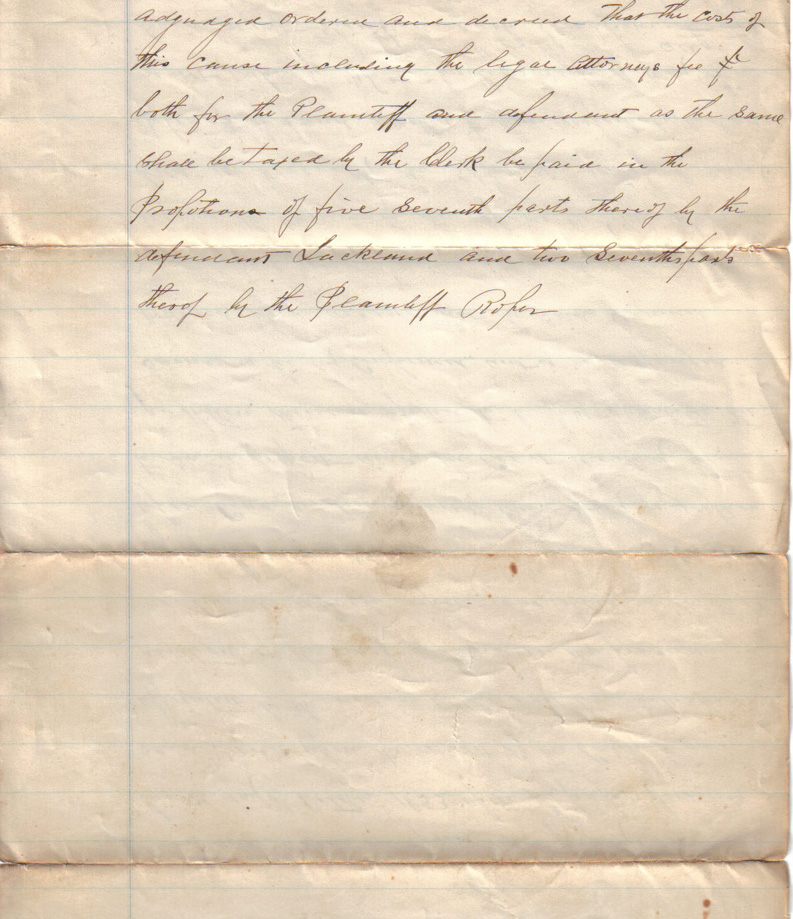 adjudged ordered and decreed That the costs of
this cause including the legal attorneys fee
both for the Plaintiff and defendant as the same
shall be taxed by the Clerk be paid in the
Propotions of five Seventh parts thereof by the
defendant Lackland and two Sevenths parts
therof by the Plaintiff Roper